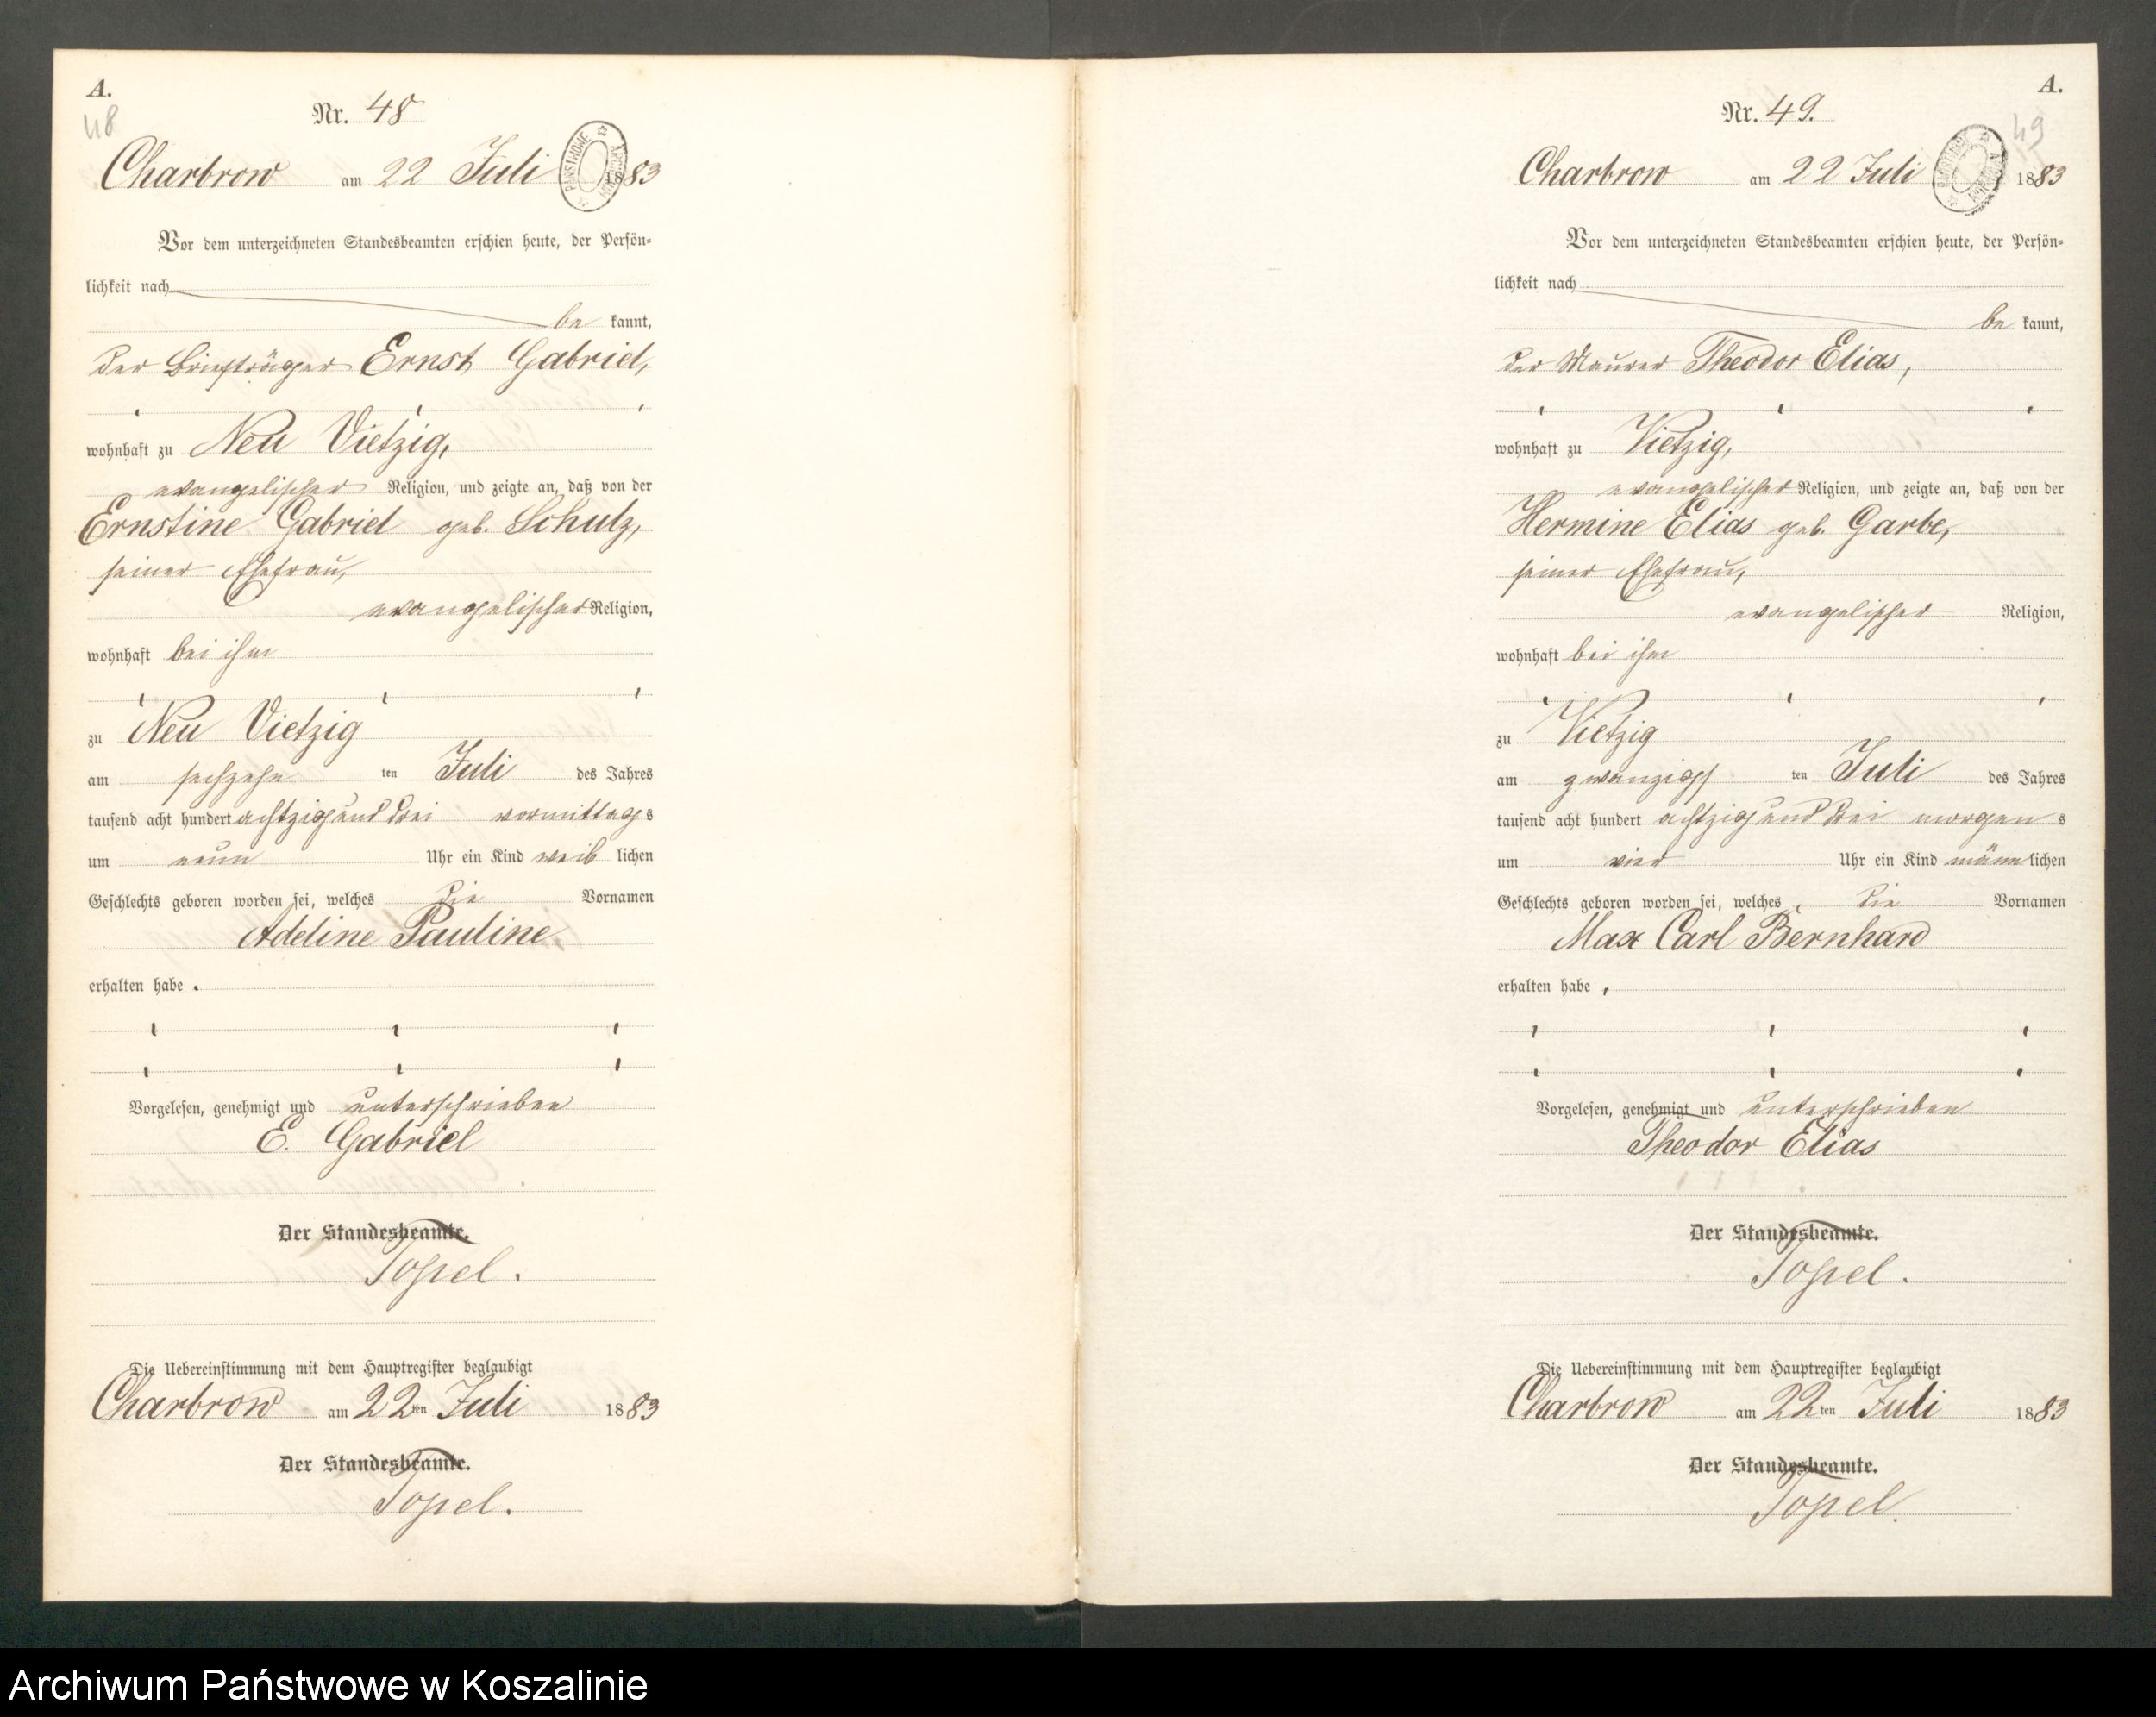 A.
48
Nr. 48
Charbrow am 22 Juli 1883
PAŃSTWOWE ARCHIWUM
Vor dem unterzeichneten Standesbeamten erschien heute, der Persön-
lichkeit nach
be kannt,
der Briefträger Ernst Gabriel,
wohnhaft zu Neu Vietzig,
evangelischer Religion, und zeigte an, daß von der
Ernstine Gabriel geb. Schulz,
seiner Ehefrau,
evangelischer Religion,
wohnhaft bei ihm
zu Neu Vietzig
am sechzehn ten Juli des Jahres
tausend acht hundert achtzig und drei vormittag s
um neun Uhr ein Kind weib lichen
Geschlechts geboren worden sei, welches die Vornamen
Adeline Pauline,
erhalten habe .
Vorgelesen, genehmigt und unterschrieben
E. Gabriel
Der Standesbeamte.
Topel.
Die Uebereinstimmung mit dem Hauptregister beglaubigt
Charbrow am 22 ten Juli 1883
Der Standesbeamte.
Topel.
A.
49
Nr. 49.
Charbrow am 22 Juli 1883
PAŃSTWOWE ARCHIWUM
Vor dem unterzeichneten Standesbeamten erschien heute, der Persön-
lichkeit nach
be kannt,
der Maurer Theodor Elias,
wohnhaft zu Vietzig,
evangelischer Religion, und zeigte an, daß von der
Hermine Elias geb. Garbe,
seiner Ehefrau,
evangelischer Religion,
wohnhaft bei ihm
zu Vietzig
am zwanzigs ten Juli des Jahres
tausend acht hundert achtzig und drei morgen s
um vier Uhr ein Kind männ lichen
Geschlechts geboren worden sei, welches die Vornamen
Max Carl Bernhard
erhalten habe ,
Vorgelesen, genehmigt und unterschrieben
Theodor Elias
Der Standesbeamte.
Topel.
Die Uebereinstimmung mit dem Hauptregister beglaubigt
Charbrow am 22 ten Juli 1883
Der Standesbeamte.
Topel.
Archiwum Państwowe w Koszalinie